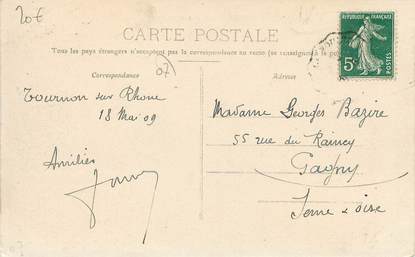 20€
CARTE POSTALE
Tous les pays étrangers n'acceptent pas la correspondance au recto (se renseigner à la po
Correspondance
07
Adresse
RÉPUBLIQUE FRANÇAISE
5c
POSTES
Tournon sur Rhone
18 Mai 09
Amitiés
Madame Georges Bazire
55 rue du Raincy
Gagny
Seine & oise